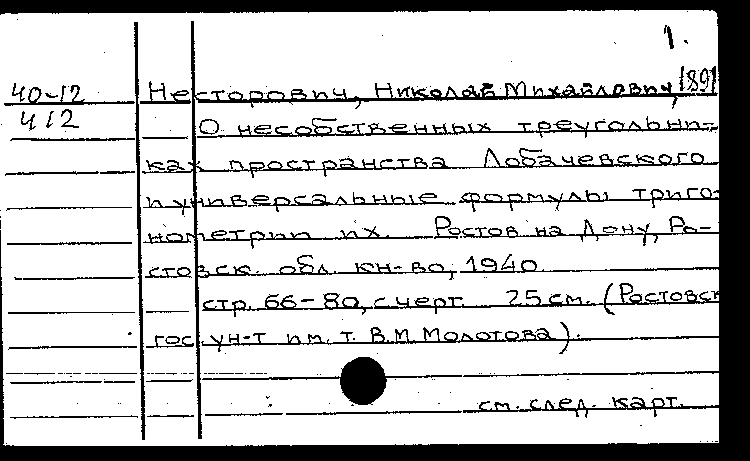 1.
40-12 Несторович, Николай Михайлович, 1891
412
О несобственных треугольни-
ках пространства Лобачевского
и универсальные формулы триго-
нометрии их. Ростов на Дону, Ро-
стовск. обл. кн-во, 1940
стр. 66-80, с черт. 25 см. (Ростовск
гос. ун-т им. т. В.М. Молотова).
см. след. карт.